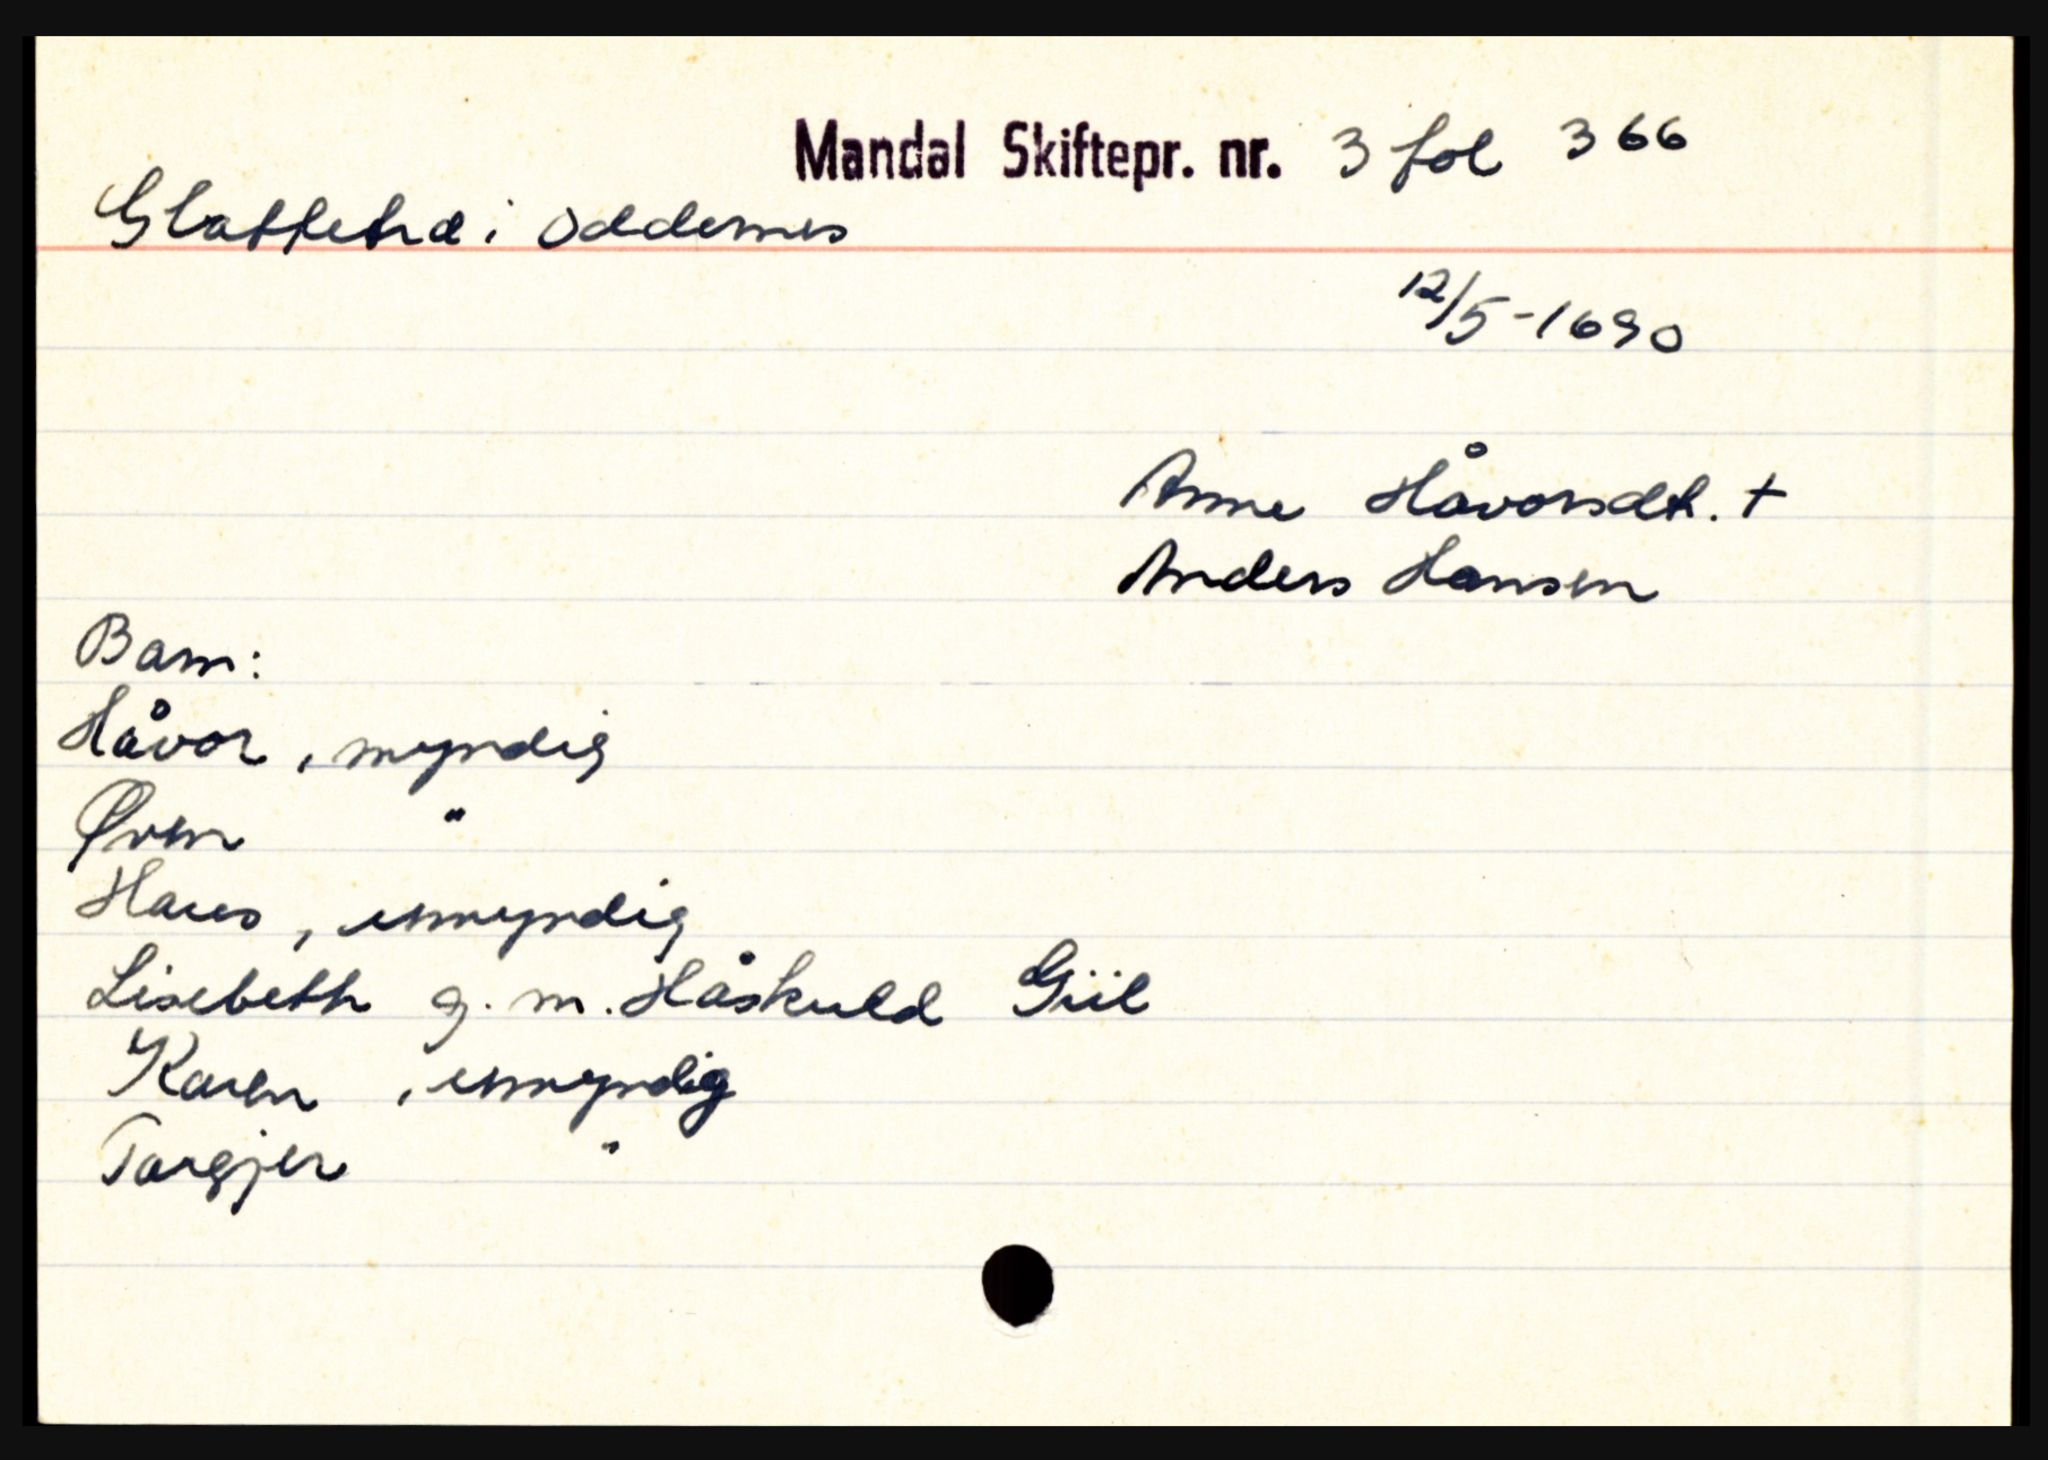 Mandal Skiftepr. nr. 3 fol 366
Glattetre i Oddernes
12/5-1690
Anne Håvorsdt. +
Anders Hansen
Barn:
Håvor, myndig
Øven "
Hans, umyndig
Lisebeth g. m. Håskuld Giil
Karen, umyndig
Torgjer "